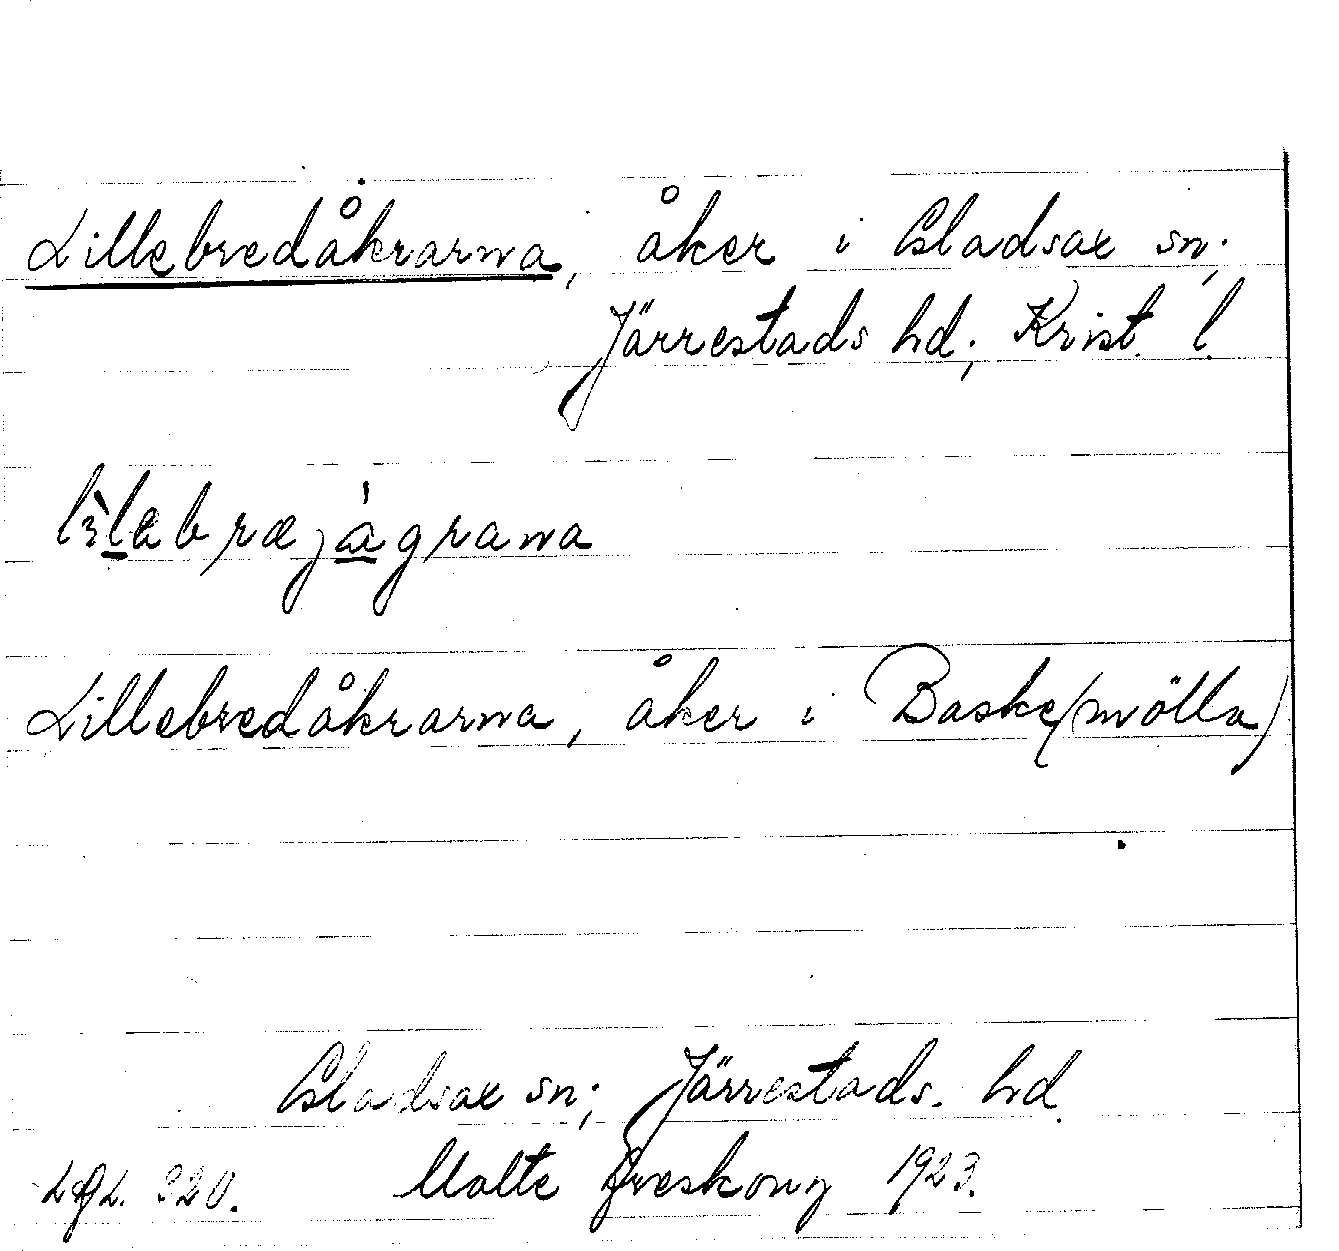 Lillebredåkrarna, åker i Gladsax sn;
Järrestads hd; Krist. l.
lìlebræjágrana
Lillebredåkrarna, åker i Baske(mölla)
Gladsax sn; Järrestads. hd.
320. Malte 1923.